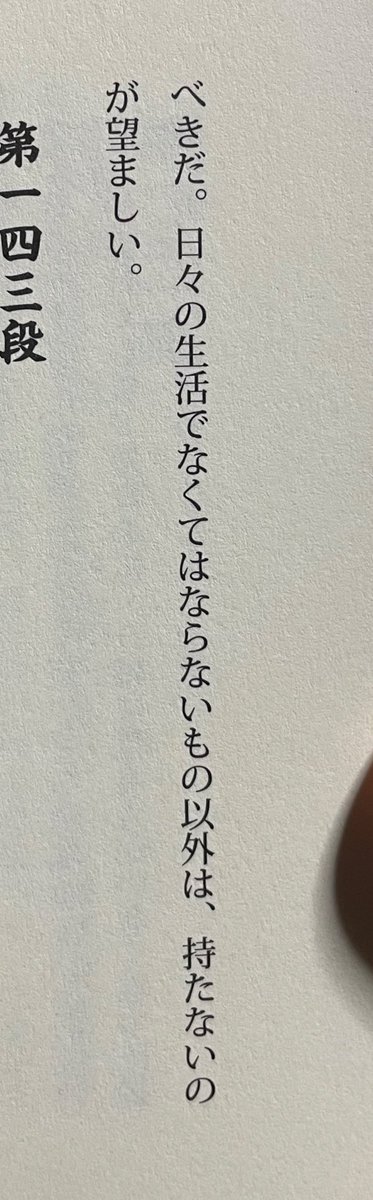 べきだ。日々の生活でなくてはならないもの以外は、持たないの
が望ましい。
第一四三段